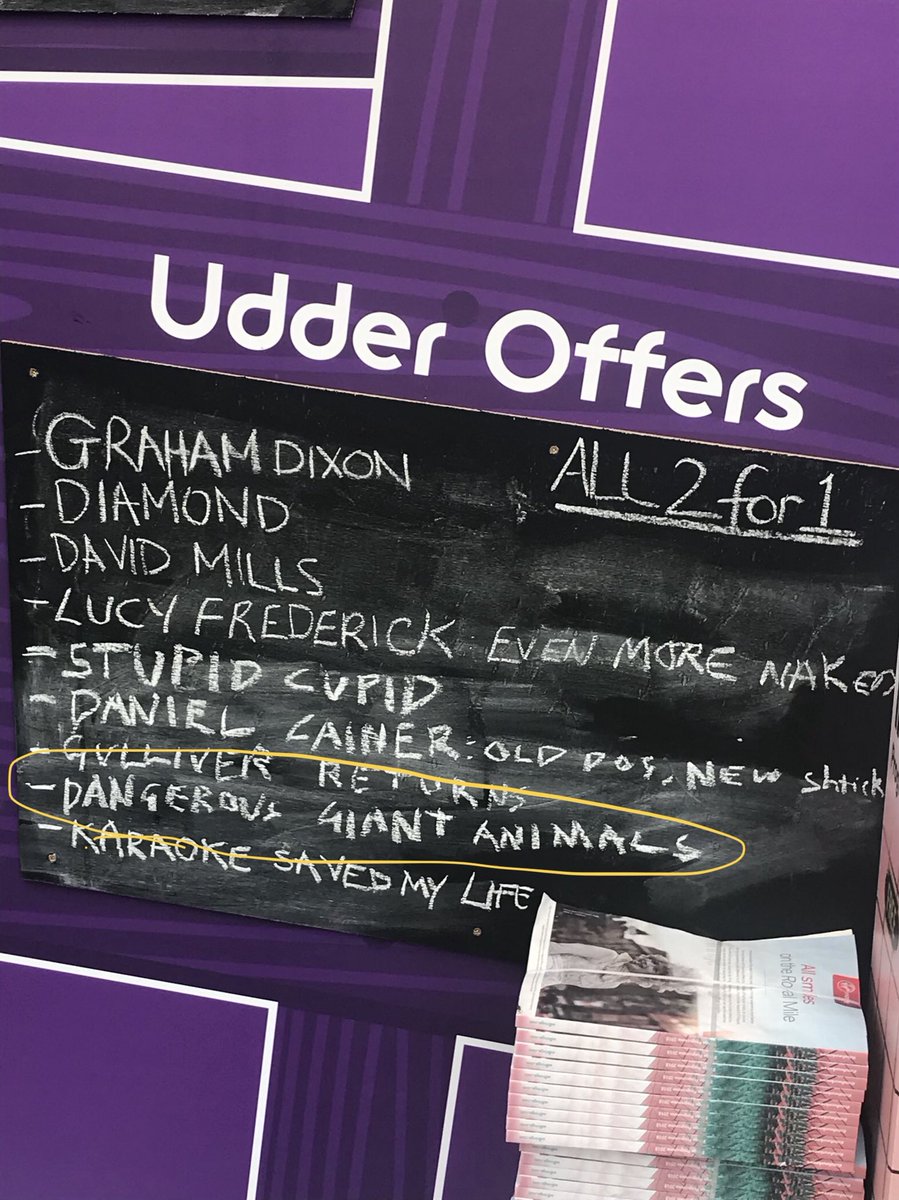 Udder Offers
ALL 2 for 1
- GRAHAM DIXON
- DIAMOND
- DAVID MILLS
- LUCY FREDERICK: EVEN MORE NAKED
- STUPID CUPID
- DANIEL CAINER: OLD DOG, NEW Shtick
- GULLIVER RETURNS
- DANGEROUS GIANT ANIMALS
- KARAOKE SAVED MY LIFE
All smiles
on the Royal Mile